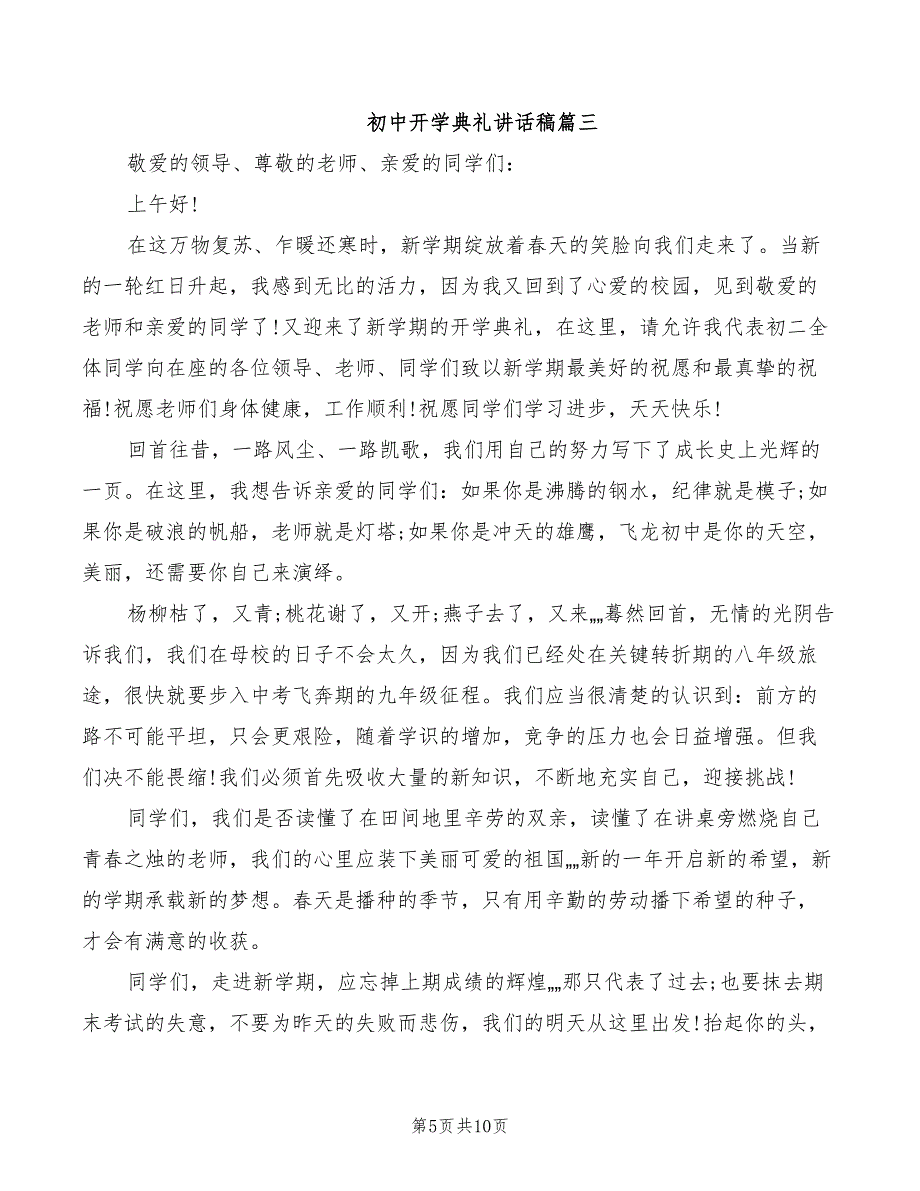 初中开学典礼讲话稿篇三
敬爱的领导、尊敬的老师、亲爱的同学们：
上午好!
在这万物复苏、乍暖还寒时，新学期绽放着春天的笑脸向我们走来了。当新
的一轮红日升起，我感到无比的活力，因为我又回到了心爱的校园，见到敬爱的
老师和亲爱的同学了!又迎来了新学期的开学典礼，在这里，请允许我代表初二全
体同学向在座的各位领导、老师、同学们致以新学期最美好的祝愿和最真挚的祝
福!祝愿老师们身体健康，工作顺利!祝愿同学们学习进步，天天快乐!
回首往昔，一路风尘、一路凯歌，我们用自己的努力写下了成长史上光辉的
一页。在这里，我想告诉亲爱的同学们：如果你是沸腾的钢水，纪律就是模子;如
果你是破浪的帆船，老师就是灯塔;如果你是冲天的雄鹰，飞龙初中是你的天空，
美丽，还需要你自己来演绎。
杨柳枯了，又青;桃花谢了，又开;燕子去了，又来„„蓦然回首，无情的光阴告
诉我们，我们在母校的日子不会太久，因为我们已经处在关键转折期的八年级旅
途，很快就要步入中考飞奔期的九年级征程。我们应当很清楚的认识到：前方的
路不可能平坦，只会更艰险，随着学识的增加，竞争的压力也会日益增强。但我
们决不能畏缩!我们必须首先吸收大量的新知识，不断地充实自己，迎接挑战!
同学们，我们是否读懂了在田间地里辛劳的双亲，读懂了在讲桌旁燃烧自己
青春之烛的老师，我们的心里应装下美丽可爱的祖国„„新的一年开启新的希望，新
的学期承载新的梦想。春天是播种的季节，只有用辛勤的劳动播下希望的种子，
才会有满意的收获。
同学们，走进新学期，应忘掉上期成绩的辉煌„„那只代表了过去;也要抹去期
末考试的失意，不要为昨天的失败而悲伤，我们的明天从这里出发!抬起你的头，
第5页共10页